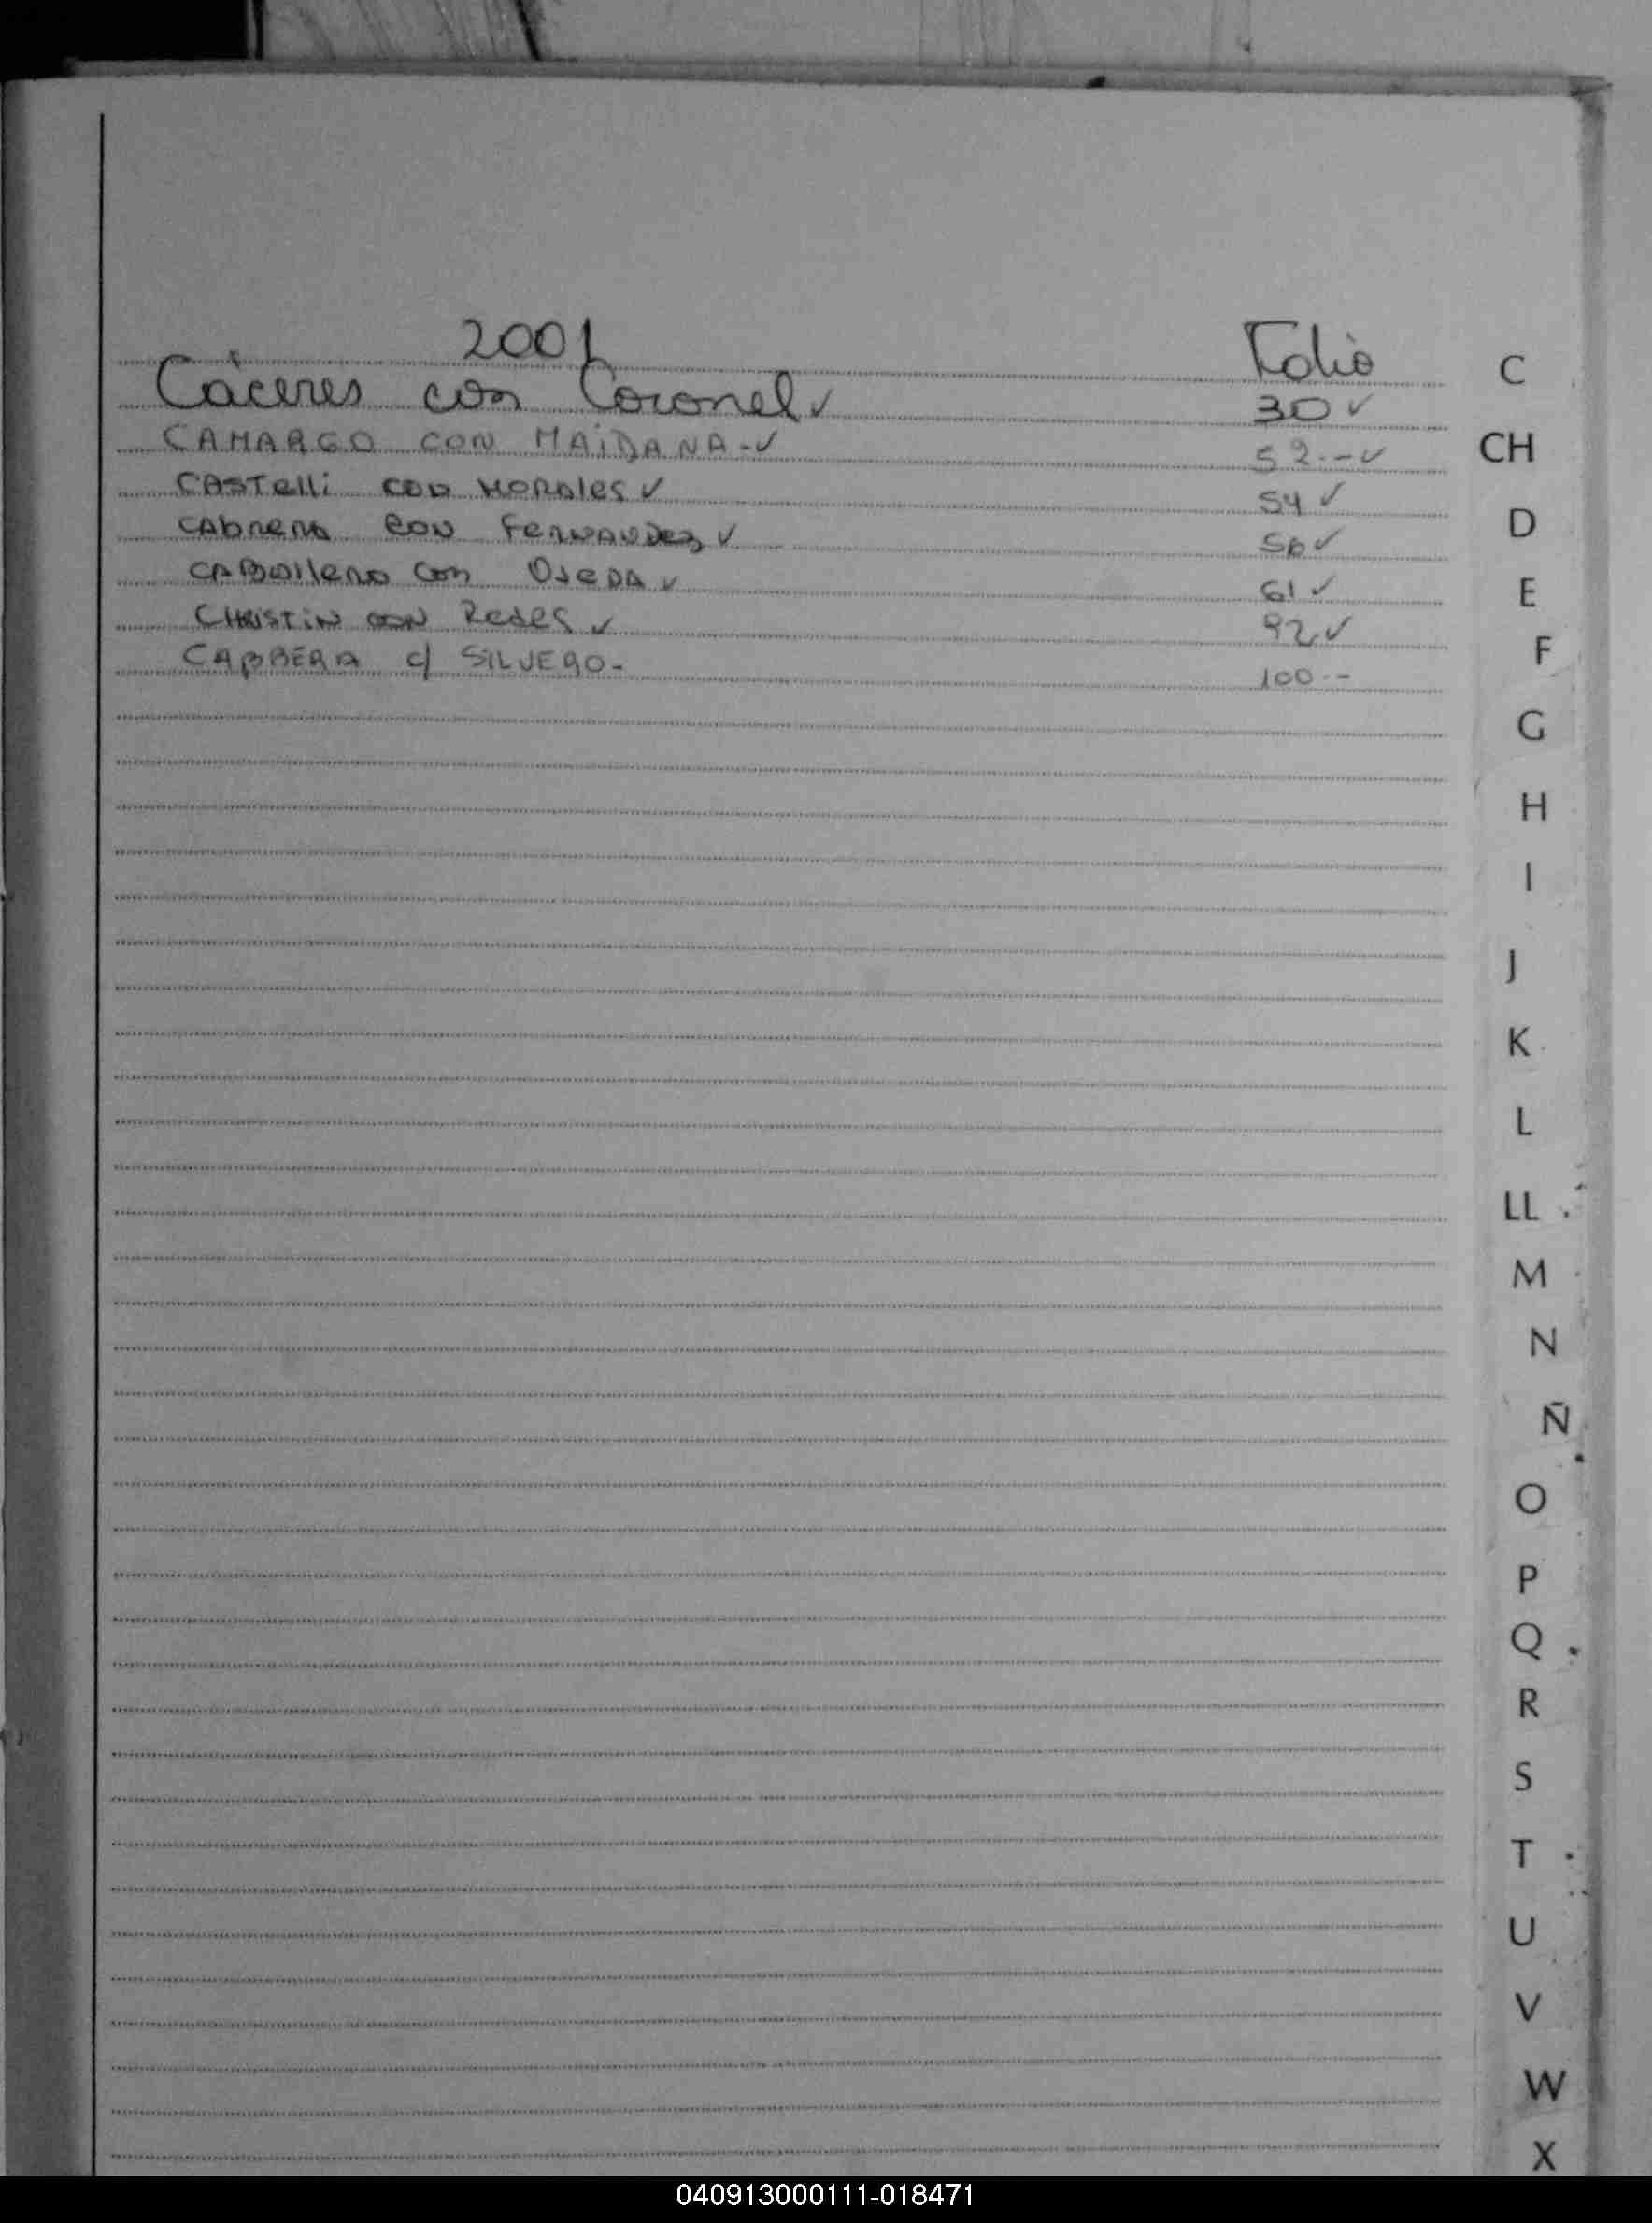 2001 Folio
Cáceres con Coronel ✓ 30 ✓
CAMARGO CON MAIDANA.-✓ 52.-✓
CASTELLI CON MORALES ✓ 54 ✓
CABRERA CON FERNANDEZ ✓ 56 ✓
CABALLERO CON OJEDA ✓ 61 ✓
CHRISTIN CON Redes ✓ 92 ✓
CABRERA c/ SILVERO- 100.-
C
CH
D
E
F
G
H
I
J
K
L
LL
M
N
Ñ
O
P
Q
R
S
T
U
V
W
X
040913000111-018471